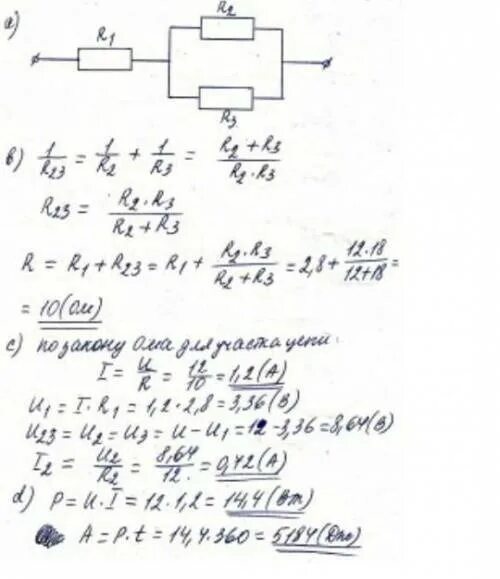 a)
R₁
R₂
R₃
в) 1/R₂₃ = 1/R₂ + 1/R₃ = (R₂ + R₃)/(R₂·R₃)
R₂₃ = (R₂·R₃)/(R₂ + R₃)
R = R₁ + R₂₃ = R₁ + (R₂·R₃)/(R₂ + R₃) = 2,8 + (12·18)/(12+18) =
= 10 (Ом)
c) по закону Ома для участка цепи:
I = U/R = 12/10 = 1,2 (А)
U₁ = I·R₁ = 1,2·2,8 = 3,36 (В)
U₂₃ = U₂ = U₃ = U - U₁ = 12 - 3,36 = 8,64 (В)
I₂ = U₂/R₂ = 8,64/12 = 0,72 (А)
d) P = U·I = 12·1,2 = 14,4 (Вт)
A = P·t = 14,4·360 = 5184 (Дж)